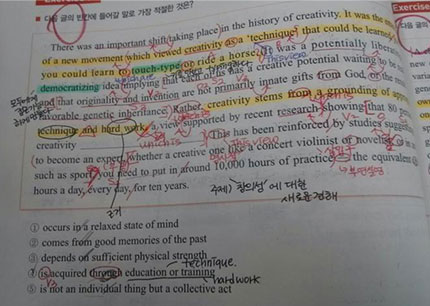 Exercise
다음 글의 빈칸에 들어갈 말로 가장 적절한 것은?
There was an important shift taking place in the history of creativity. It was the
of a new movement which viewed creativity as a 'technique' that could be learned
you could learn to touch-type or ride a horse. It was a potentially liberat
democratizing idea implying that each of us has creative potential waiting to be
and that originality and invention are not primarily innate gifts from God, or the
favorable genetic inheritance. Rather, creativity stems from a grounding of
technique and hard work, a view supported by recent research showing that 80 p
creativity This has been reinforced by studies sugges
to become an expert whether a creative one like a concert violinist or novelist or in
such as sport, you need to put in around 10,000 hours of practice the equivalent
hours a day, every day, for ten years.
주제) '창의성'에 대한
새로운 견해
근거
① occurs in a relaxed state of mind
② comes from good memories of the past
③ depends on sufficient physical strength
technique.
④ is acquired through education or training
hardwork
⑤ is not an individual thing but a collective act
Exercise
다음 글의